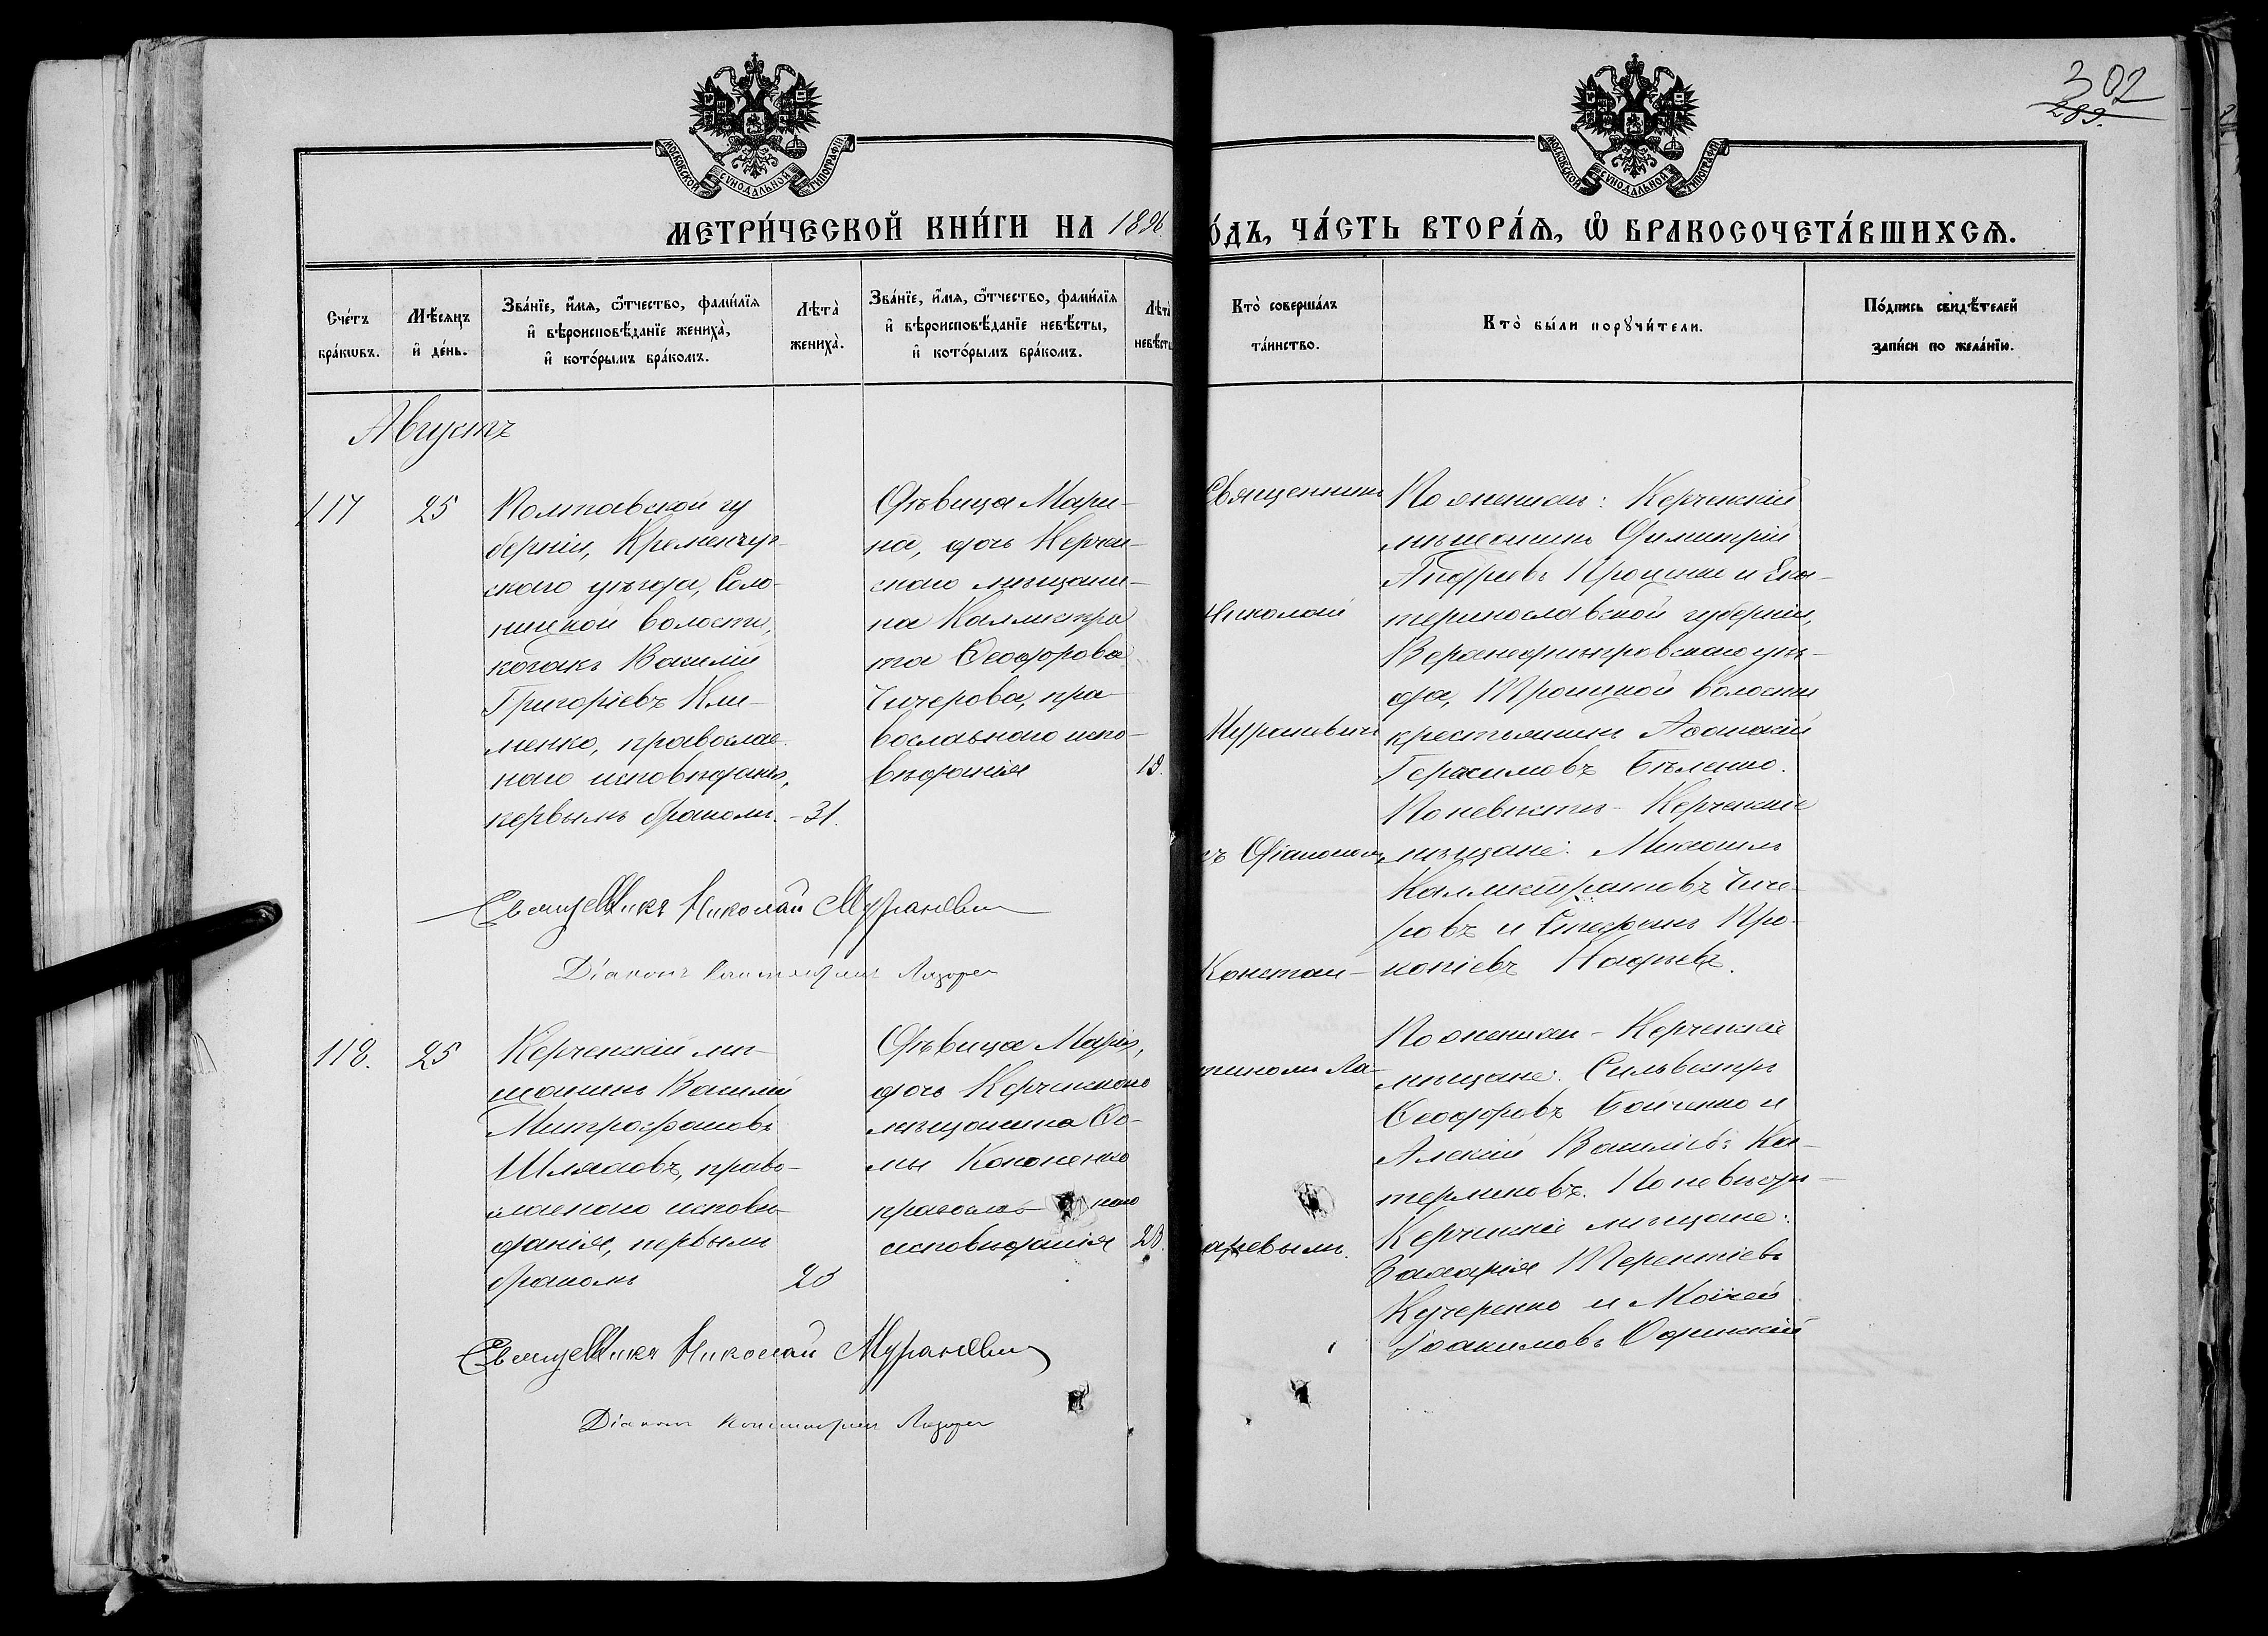 302
289.
МОСКОВСКОЙ СѴНОДАЛЬНОЙ ТИПОГРАФІИ
МОСКОВСКОЙ СѴНОДАЛЬНОЙ ТИПОГРАФІИ
МЕТРИ́ЧЕСКОЙ КНИ́ГИ НА 1896
О́ДЪ, ЧА́СТЬ ВТОРА́Ѧ, Ѡ҆ БРАКОСОЧЕТА́ВШИХСѦ.
Сче́тъ
бра́кѡвъ.
Мѣ́сѧцъ
и҆ де́нь.
Зва́нїе, и҆́мѧ, ѻ҆́тчество, фами́лїѧ
и҆ вѣроисповѣ́данїе жениха̀,
и҆ кото́рымъ бра́комъ.
Лѣта̀
жениха̀.
Зва́нїе, и҆́мѧ, ѻ҆́тчество, фами́лїѧ
и҆ вѣроисповѣ́данїе невѣ́сты,
и҆ кото́рымъ бра́комъ.
Лѣта̀
невѣ́сты
Кто̀ соверша́лъ
та́инство.
Кто̀ бы́ли порꙋчи́тели.
По́дпись свидѣ́телей
за́писи по жела́нїю.
Августъ
117
25
Полтавской гу
берніи, Кременчуг-
скаго уѣзда, Соло-
ницкой волости,
козакъ Василій
Григоріевъ Кли-
менко, православ-
наго исповѣданія,
первымъ бракомъ.
-31.
Дѣвица Мари-
на, дочь Керчен-
скаго мѣщани-
на Каллистра
та Ѳеодорова
Чичерова, пра
вославнаго испо-
вѣданія
19.
Священникъ
Николай
Мураневичъ
съ Діакономъ
Констан-
тиномъ Ла-
заревымъ.
По женихѣ: Керченскій
мѣщанинъ Димитрій
Андреевъ Троцкій и Ека-
теринославской губерніи,
Верхнеднѣпровскаго уѣз-
да, Троицкой волости
крестьянинъ Аѳанасій
Герасимовъ Бѣленко.
По невѣстѣ - Керченскіе
мѣщане: Михаилъ
Каллистратовъ Чиче-
ровъ и Стефанъ Про-
копіевъ
Священникъ Николай Мураневич
Діаконъ Константинъ Лазарев
118.
25
Керченскій мѣ-
щанинъ Василій
Митрофановъ
Шляховъ, право-
славнаго исповѣ-
данія, первымъ
бракомъ
25
Дѣвица Марія,
дочь Керченскаго
мѣщанина Ѳо-
мы Кононенко
православ- наго
исповѣданія
20.
По женихѣ - Керченскіе
мѣщане: Сильвестръ
Ѳеодоровъ Бойченко и
Алексій Василіевъ Ка-
терликовъ. По невѣстѣ -
Керченскіе мѣщане:
Захарія Терентіевъ
Кучеренко и Моисей
Іоакимовъ
Священникъ Николай Мураневич
Діаконъ Константинъ Лазарев